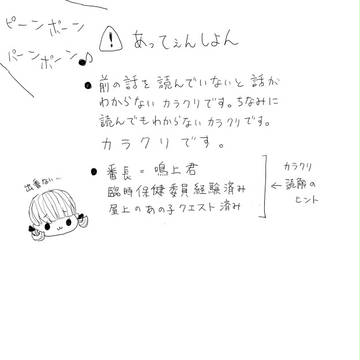 ピーンポーン
パーンポーン♪
! あってんしょん
● 前の話を読んでいないと話が
わからないカラクリです。ちなみに
読んでもわからないカラクリです。
カラクリです。
● 番長=鳴上君
臨時保健委員経験済み
屋上のあの子クエスト済み
← カラクリ
読解の
ヒント
出番ない…